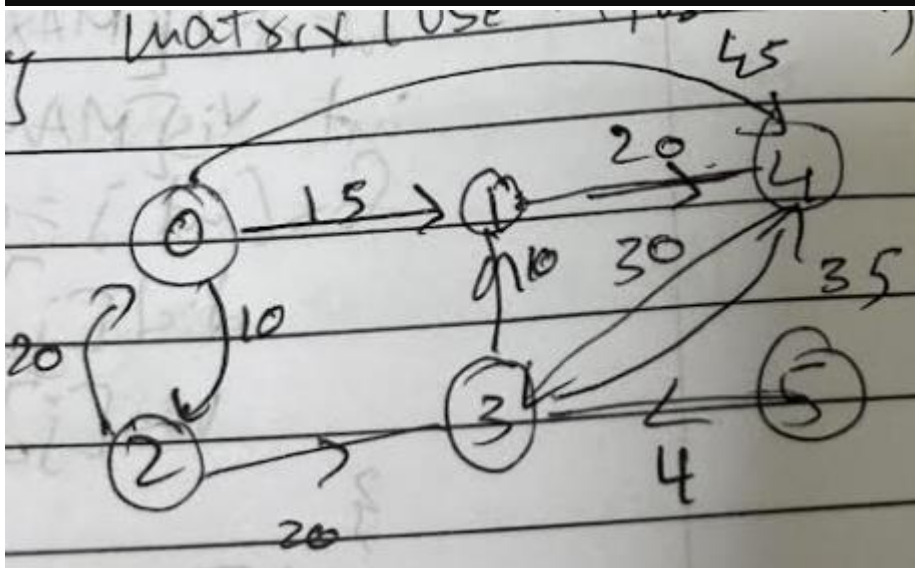 y matrix (use
45
20
0 15 1 4
10 30 35
20 10
3 5
2
4
20